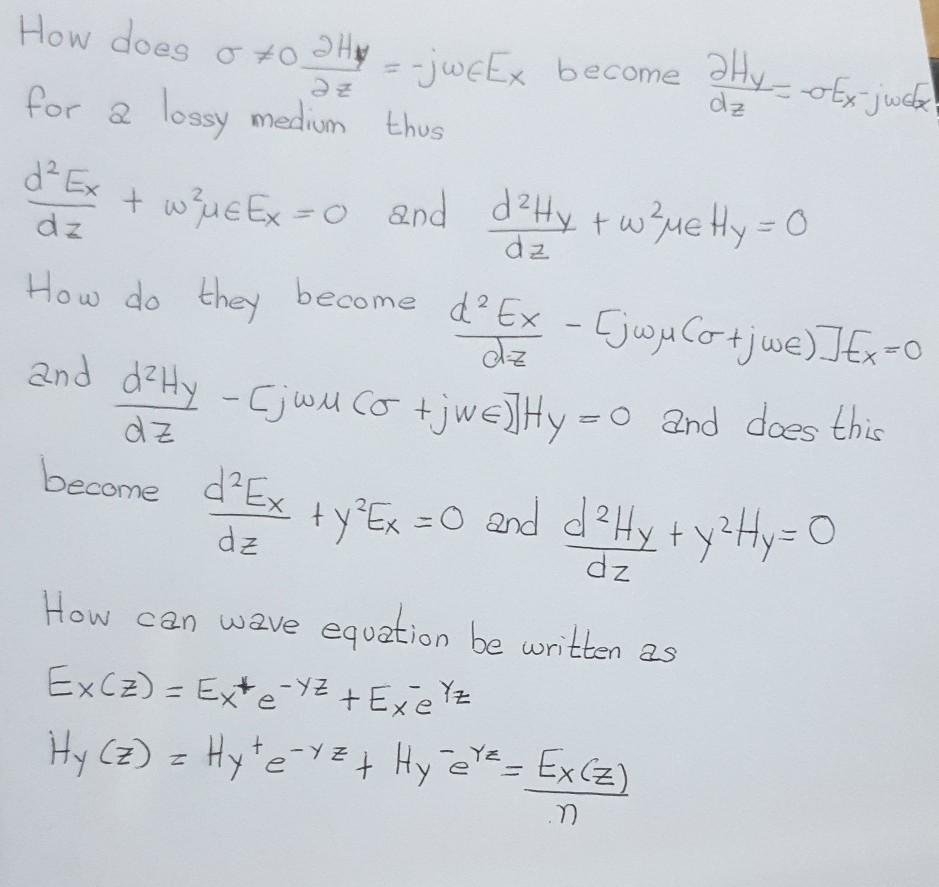 How does σ ≠ 0 ∂Hy/∂z = -jωϵEx become ∂Hy/dz = -σEx-jωϵEx
for a lossy medium thus
d²Ex/dz + ω²μϵEx = 0 and d²Hy/dz + ω²μϵHy = 0
How do they become d²Ex/dz - [jωμ(σ+jωϵ)]Ex=0
and d²Hy/dz - [jωμ(σ+jωϵ)]Hy = 0 and does this
become d²Ex/dz + γ²Ex = 0 and d²Hy/dz + γ²Hy = 0
How can wave equation be written as
Ex(z) = Ex⁺e^-γz + Ex⁻e^γz
Hy(z) = Hy⁺e^-γz + Hy⁻e^γz = Ex(z)/η